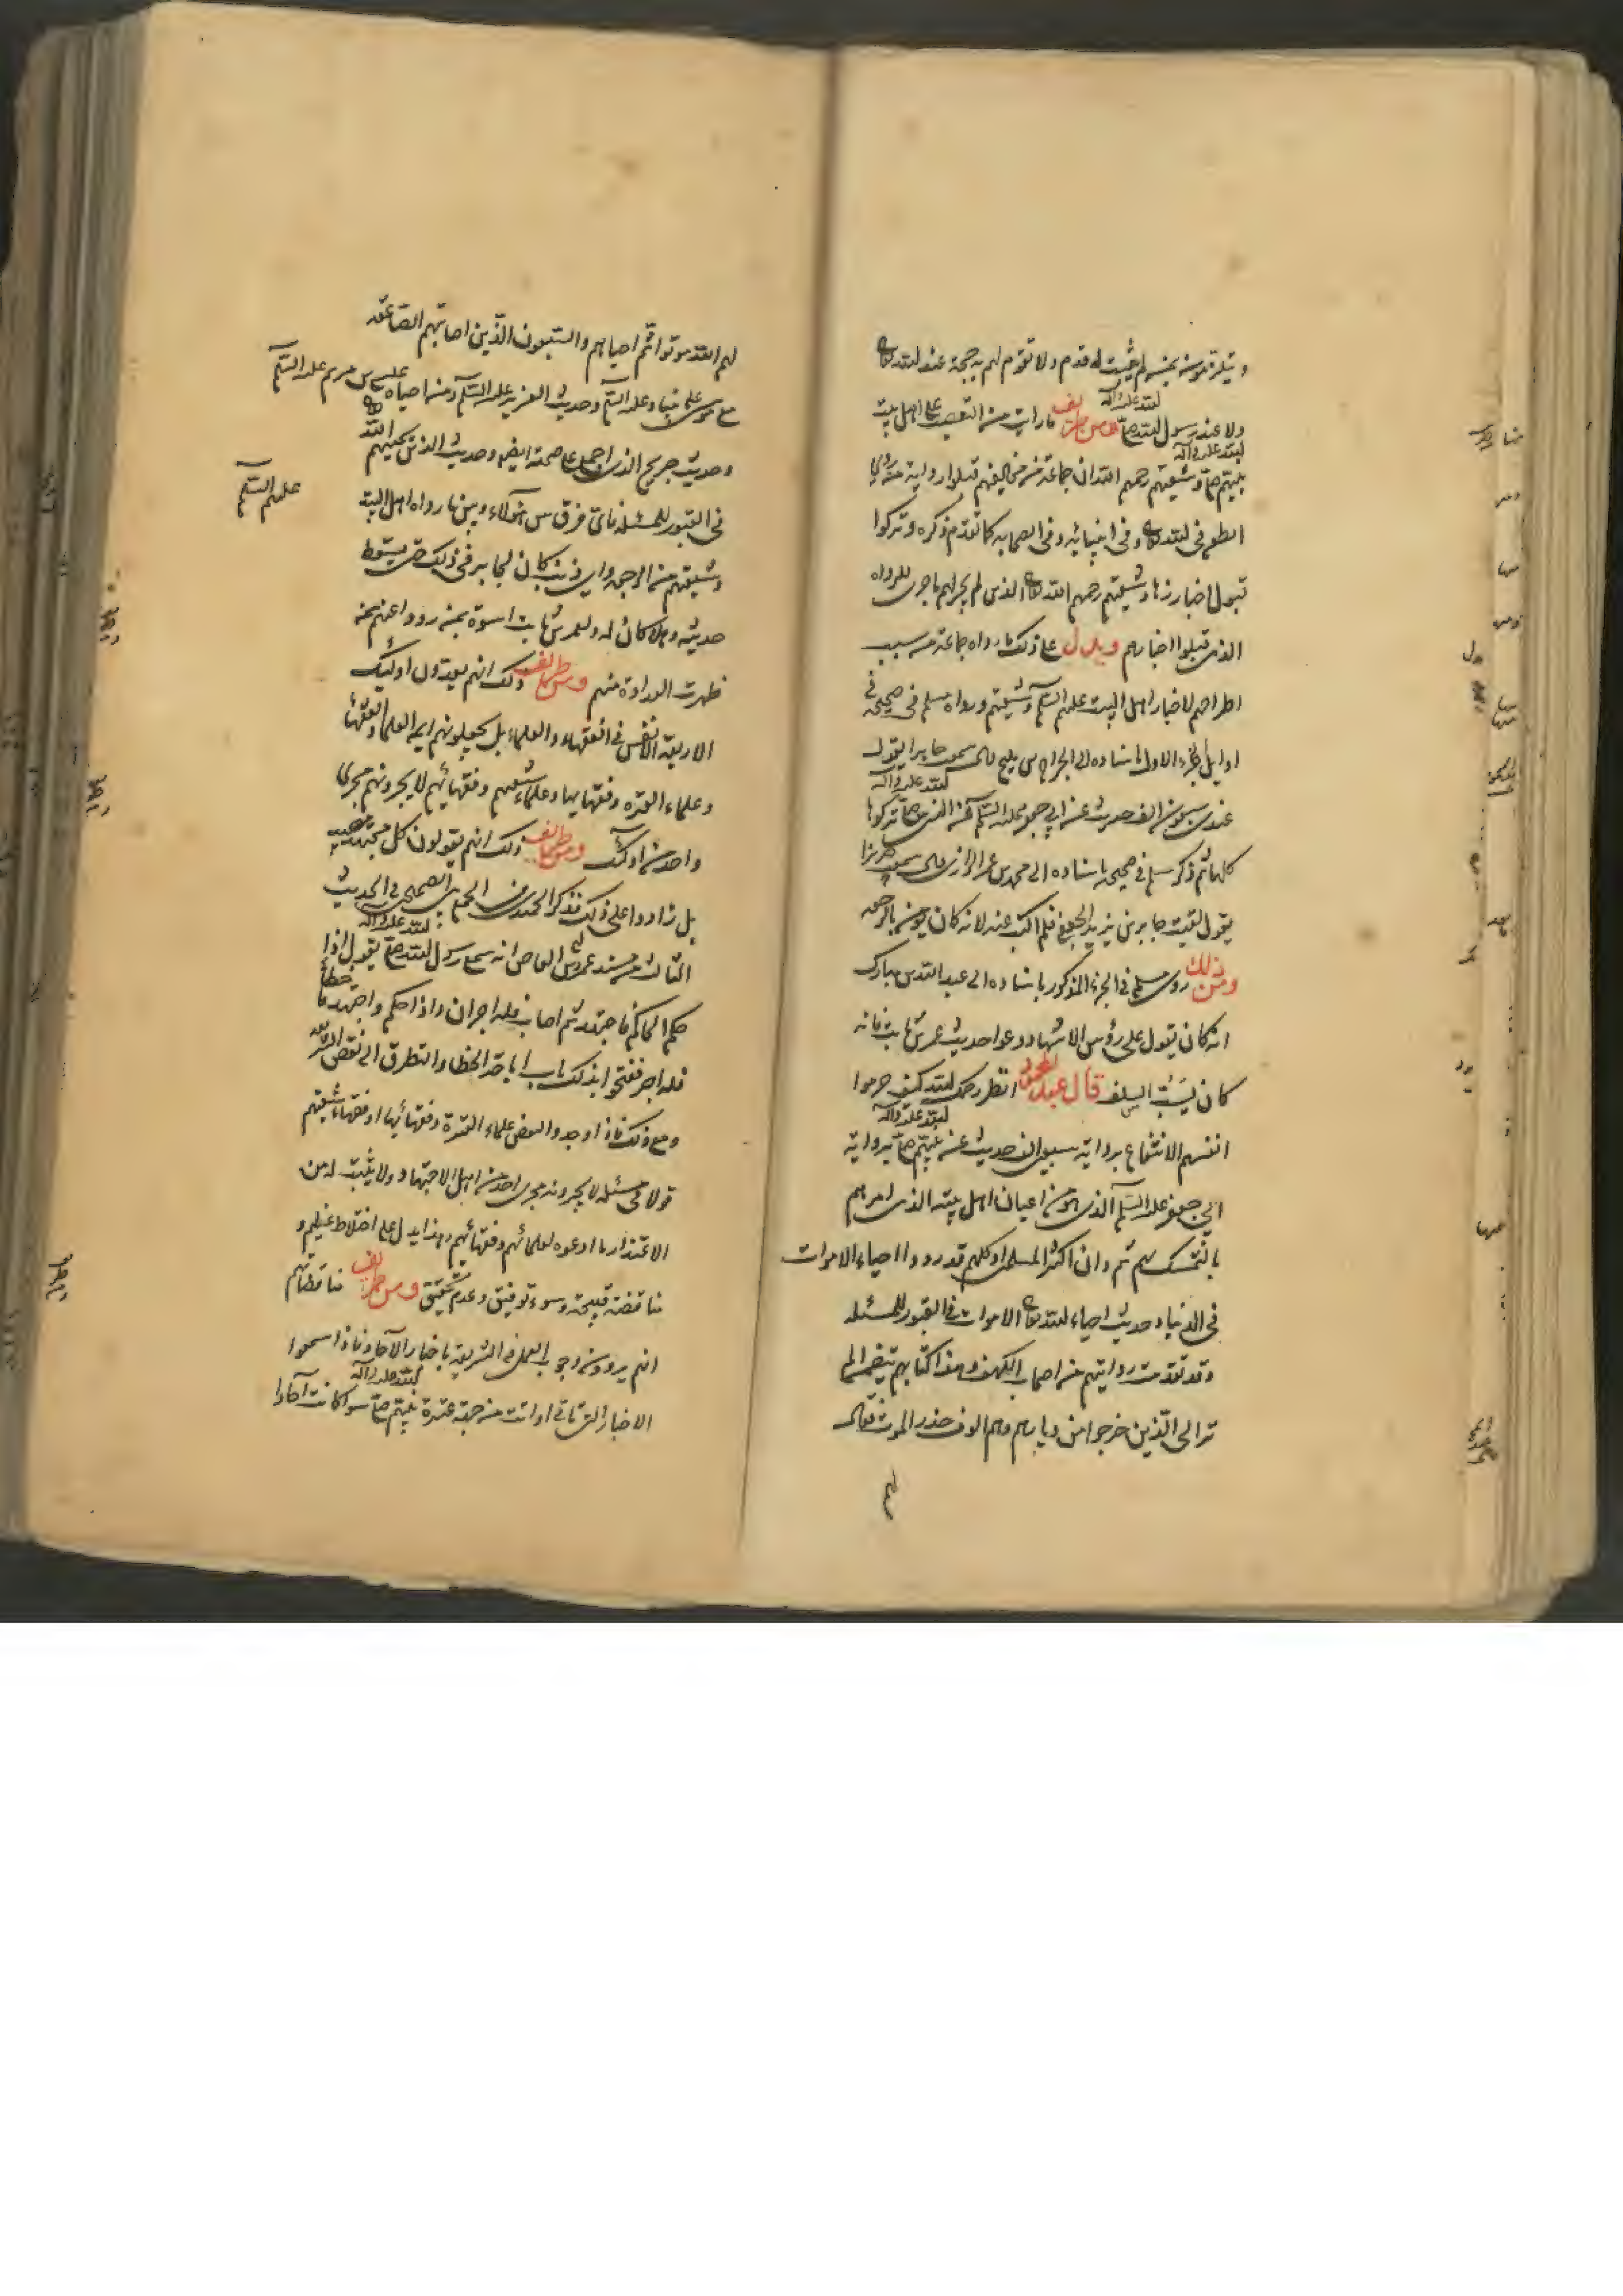 ويلتزمون بمن لم يثبت له قدم ولا تقوم لهم به حجة عند الله تعالى
ولا عند رسول الله صلى الله عليه وآله ومن طريف ما رأيت من التعصب على أهل بيت
نبيهم صلى الله عليه وآله وشيعتهم رحمهم الله ان جماعة من مخالفيهم قبلوا رواية من روى
الطعن في الله تعالى وفي انبيائه وفي الصحابة كما تقدم ذكره وتركوا
قبول اخبار وشيعتهم رحمهم الله تعالى الذين لم يجر لهم ما جرى للرواة
الذين قبلوا اخبارهم ويدل على ذلك ما رواه جماعة من سبب
اطراحهم لاخبار اهل البيت عليهم السلم وشيعتهم ورواه مسلم في صحيحه في
اوايل الجزء الاول باسناده الى الجراح بن مليح قال سمعت جابرا يقول
عندي سبعون الف حديث عن ابي جعفر محمد عليه السلم عن النبي صلى الله عليه وآله تركوها
كلها ثم ذكر مسلم في صحيحه باسناده الى محمد بن عمر الرازي قال سمعت حريزا
يقول لقيت جابر بن يزيد الجعفي فلم اكتب عنه لانه كان يؤمن بالرجعة
ومن ذلك روى مسلم في الجزء المذكور باسناده الى عبد الله بن مبارك
انه كان يقول على رؤس الاشهاد دعوا حديث عمر بن ثابت فانه
كان يسب السلف قال عبد المحمود انظر رحمك الله كيف حرموا
انفسهم الانتفاع برواية سبعين الف حديث عن نبيهم صلى الله عليه وآله برواية
ابي جعفر عليه السلم الذي هو من اعيان اهل بيته الذين امرهم
بالتمسك بهم ثم وان اكثر المسلمين او كلهم قد رووا احياء الاموات
في الدنيا وحديث احياء الله تعالى الاموات في القبور للمسئلة
وقد تقدمت روايتهم عن اصحاب الكهف وهذا كتابهم يتضمن الم
تر الى الذين خرجوا من ديارهم وهم الوف حذر الموت فقال
لهم
لهم الله موتوا ثم احياهم والسبعون الذين اصابتهم الصاعقة
مع موسى على نبينا وعليه السلم وحديث العزير عليه السلم ومن احياه عيسى بن مريم عليه السلم
وحديث جريج الذي اجمع على صحته ايضا وحديث الذين يحييهم الله
في القبور للمسئلة فاي فرق بين هؤلاء وبين ما رواه اهل البيت عليهم السلم
وشيعتهم من الرجعة واي ذنب كان لجابر في ذلك حتى يسقط
حديثه وهلا كان له ولعمر بن ثابت اسوة بمن رووا عنهم ممن
ظهرت العداوة منهم ومن طرايف ذلك انهم يعدون اولئك
الاربعة الانفس في الفقهاء والعلماء بل يجعلونهم ايمة العلماء والفقهاء
وعلماء العترة وفقهاءها وعلماء شيعتهم وفقهائهم لا يجرونهم مجرى
واحد من اولئك ومن طرايف ذلك انهم يقولون كل مجتهد مصيب
بل زادوا على ذلك فذكر الحميدي في الجمع بين الصحيحين في الحديث
الثالث من مسند عمرو بن العاص انه سمع رسول الله صلى الله عليه وآله يقول اذا
حكم الحاكم فاجتهد ثم اصاب فله اجران واذا حكم واجتهد فاخطأ
فله اجر ففتحوا بذلك باب اباحة الخطاء والتطرق الى نقض الشريعة
ومع ذلك فاذا وجدوا لبعض علماء العترة وفقهائها او فقهاء شيعتهم
قولا في مسئلة لا يجرونه مجرى احد من اهل الاجتهاد ولا يثبت له من
الاعتذار ما ادعوه لعلمائهم وفقهائهم وهذا يدل على اختلاط عظيم و
مناقضة قبيحة وسوء توفيق وعدم تحقيق ومن طريف مناقضاتهم
انهم يروون وجوب العمل في الشريعة باخبار الآحاد فاذا سمعوا
الاخبار التي تاتي او اتت من جهة عترة نبيهم صلى الله عليه وآله سواء كانت آحادا